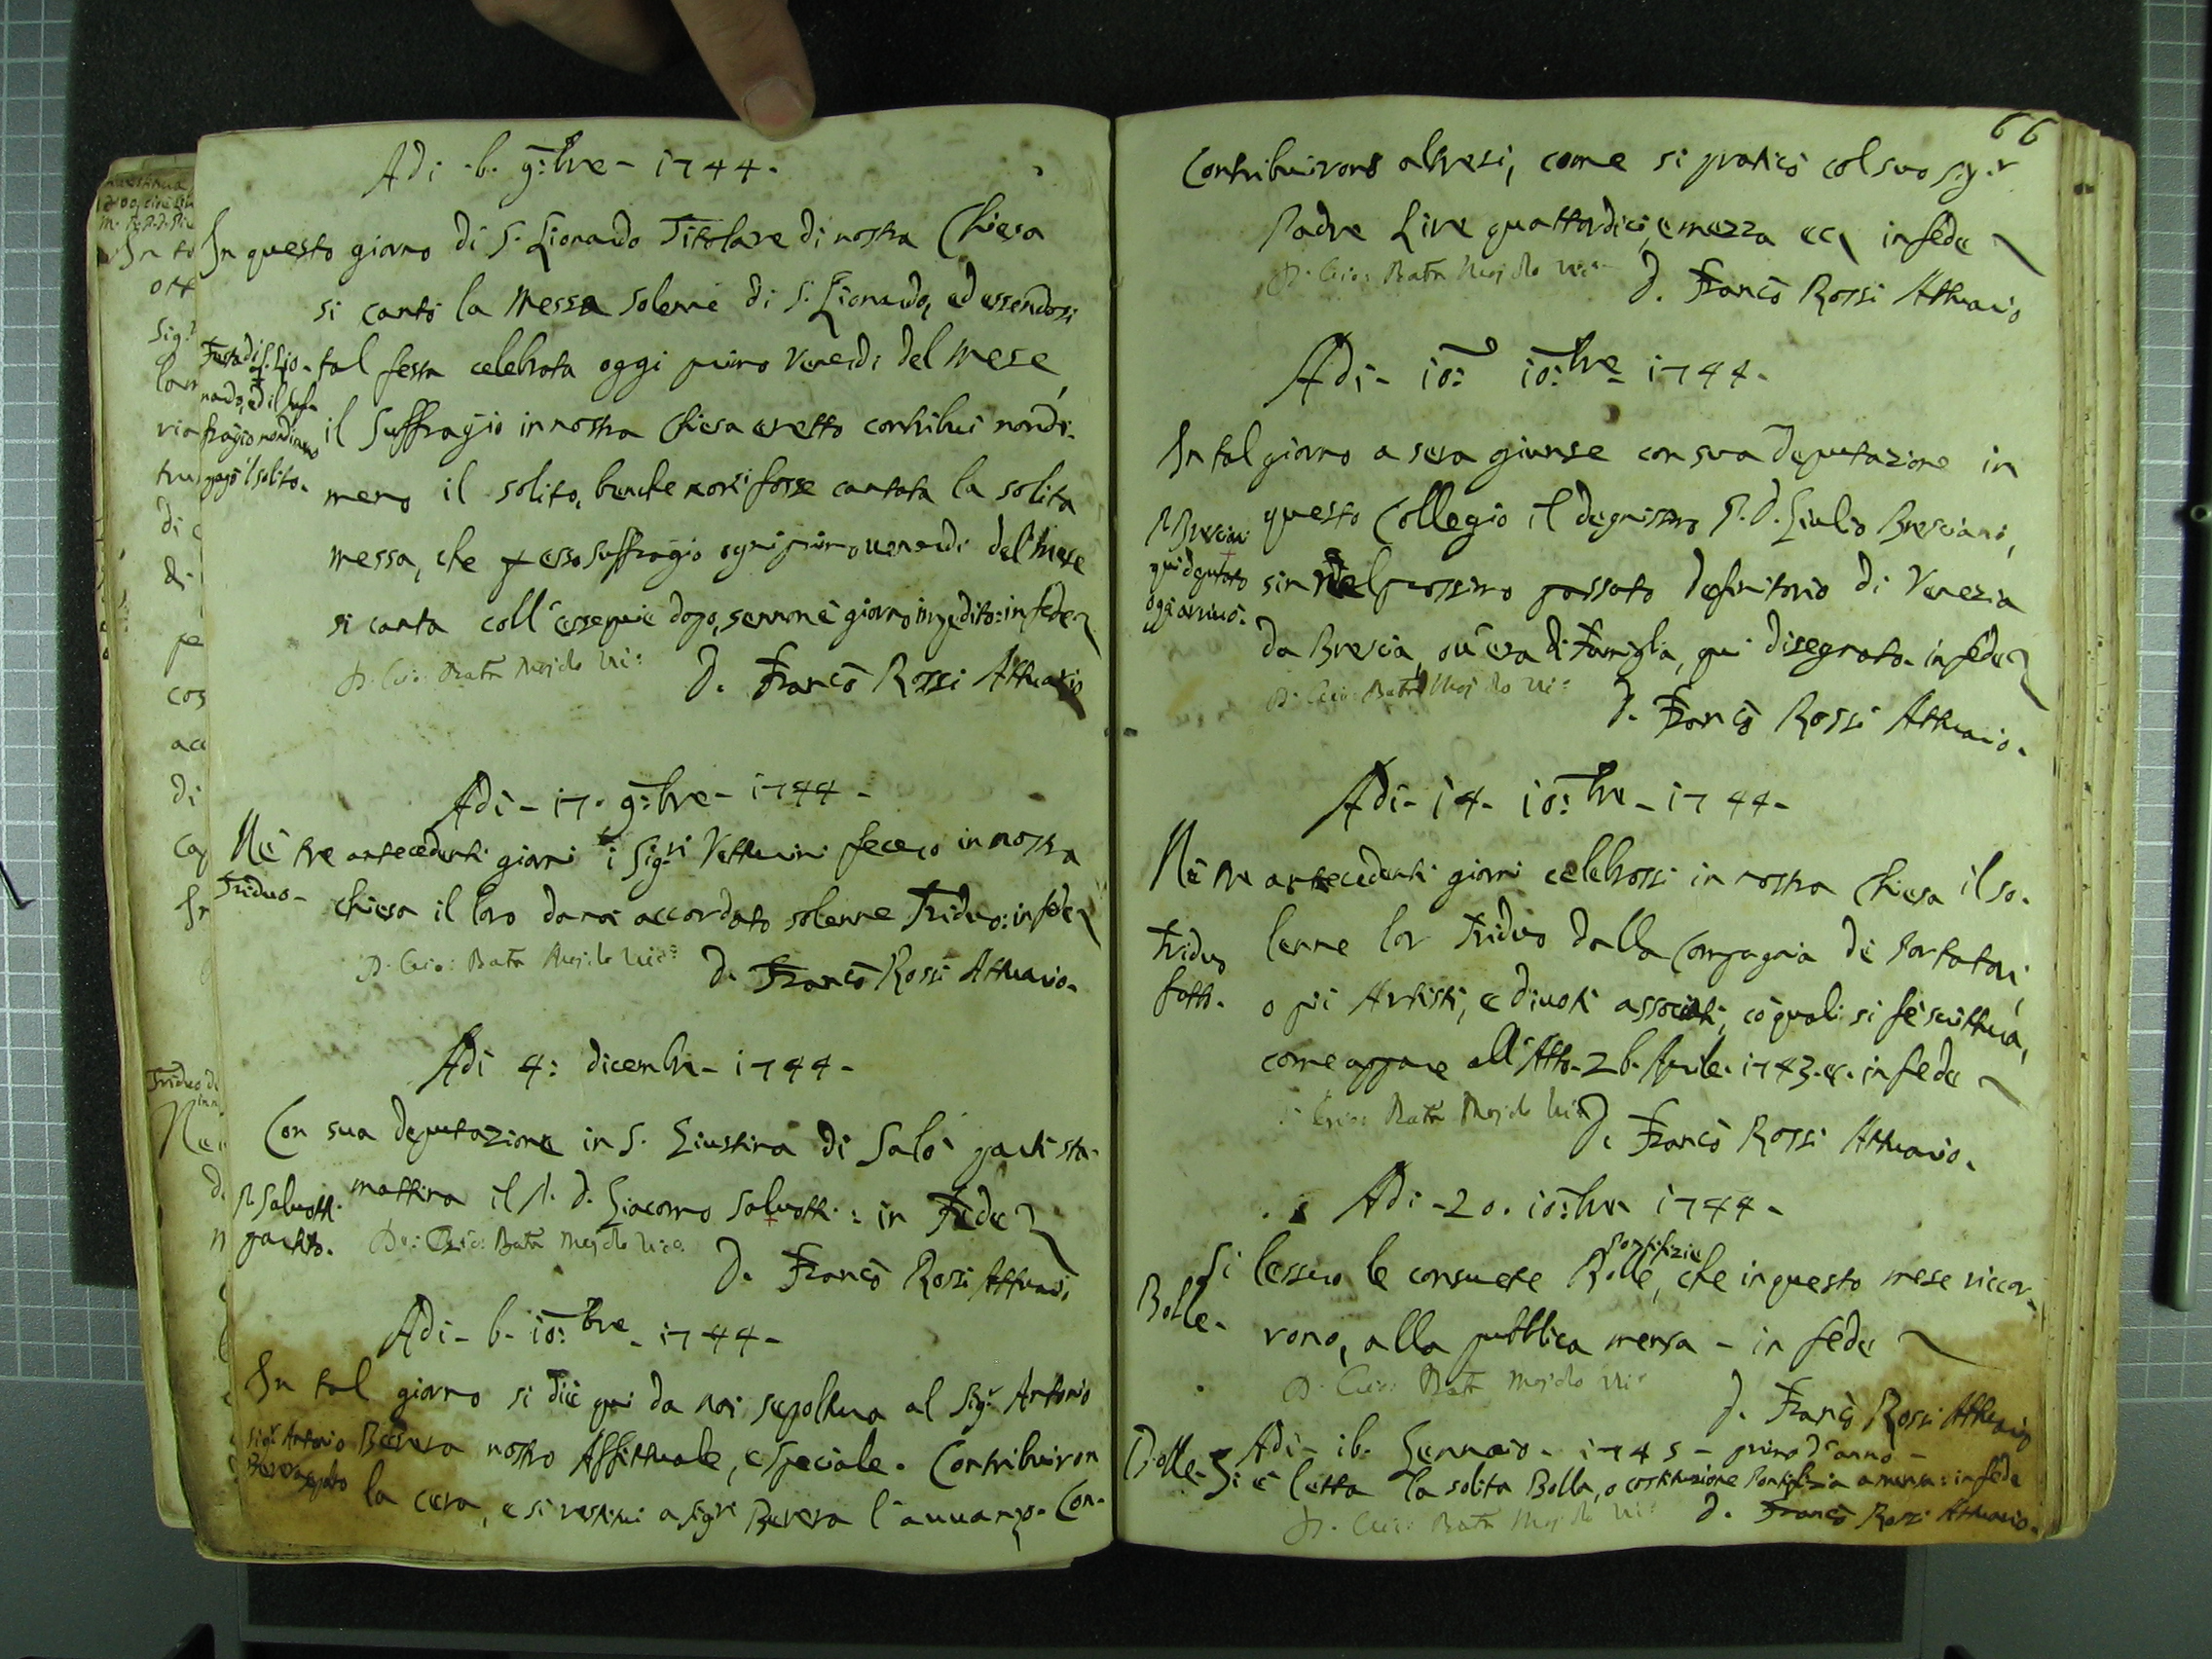 Adi -6. 9:bre - 1744.
In questo giorno di S. Lionardo Titolare di nostra Chiesa
si cantò la Messa solenne di S. Lionardo, ed essendosi
Festa di S. Lio-
nardo, ed il Suf-
fragio nondimeno
pagò il solito.
tal festa celebrata oggi primo Venerdì del Mese,
il Suffragio in nostra Chiesa eretto contribuì nondi-
meno il solito, benche non si fosse cantata la solita
messa, che p esso suffragio ogni primo venerdi del Mese
si canta coll'essequie dopo, se non è giorno impedito: in fede
D. Gio: Batta
D. Franco Rossi Attuario
Adi - 17. 9:bre - 1744 -
Nè tre antecedenti giorni i Sigri Vetturini fecero in nostra
Triduo-
chiesa il loro da noi accordato solenne Triduo: in fede
D. Gio: Batta
D. Franco Rossi Attuario.
Adi 4: dicembr - 1744 -
Con sua deputazione in S. Giustina di Salò partì sta-
P. Salvotti
partito.
mattina il P. D. Giacomo Salvotti: in Fede
D: Gio: Batta
D. Franco Rossi Attuari
Adi - 6- 10:bre - 1744 -
In tal giorno si diè qui da noi sepoltura al Sigr Antonio
Sigr Antonio
Bevera nostro Affittuale, e Speciale. Contribuiron
la cera, e si restituì a Sigri Bevera l'avvanzo. Con-
66
Contribuirono altresi, come si praticò col suo Sig.r
Padre Lire quattordici, e mezza ec, in fede
D. Gio: Batta
D. Franco Rossi Attuario
Adi - 10: 10:bre - 1744 -
In tal giorno a sera giunse con sua Deputazione in
P. Bresciani
qui deputato
oggi arrivò.
questo Collegio il degnissmo P. D. Giulio Bresciani,
sin nel prossimo passato Definitorio di Venezia
da Brescia, ov'era di Famiglia, qui disegnato. in fede
D. Gio: Batta
D. Franco Rossi Attuario.
Adi - 14 - 10:bre - 1744 -
Nè tre antecedenti giorni celebrossi in nostra Chiesa il so-
Triduo
fatto.
lenne lor Triduo dalla Compagnia de Portatori,
o pii Artisti, e divoti associati, co quali si fè scrittura,
come appare all'Atto. 26. Aprile. 1743. in fede
Gio: Batta
D. Franco Rossi Attuario.
Adi - 20. 10:bre 1744 -
Bolle -
Si lessero le consuete Bolle Pontifizie, che in questo mese riccor-
rono, alla pubblica mensa - in fede
D. Gio: Batta
D. Franco Rossi Attuario
Adi - 16. Gennaio - 1745 - primo d'anno -
Bolle -
Si è letta la solita Bolla, o costituzione Pontifizia a mensa: in fede
D. Gio: Batta
D. Franco Rossi Attuario.